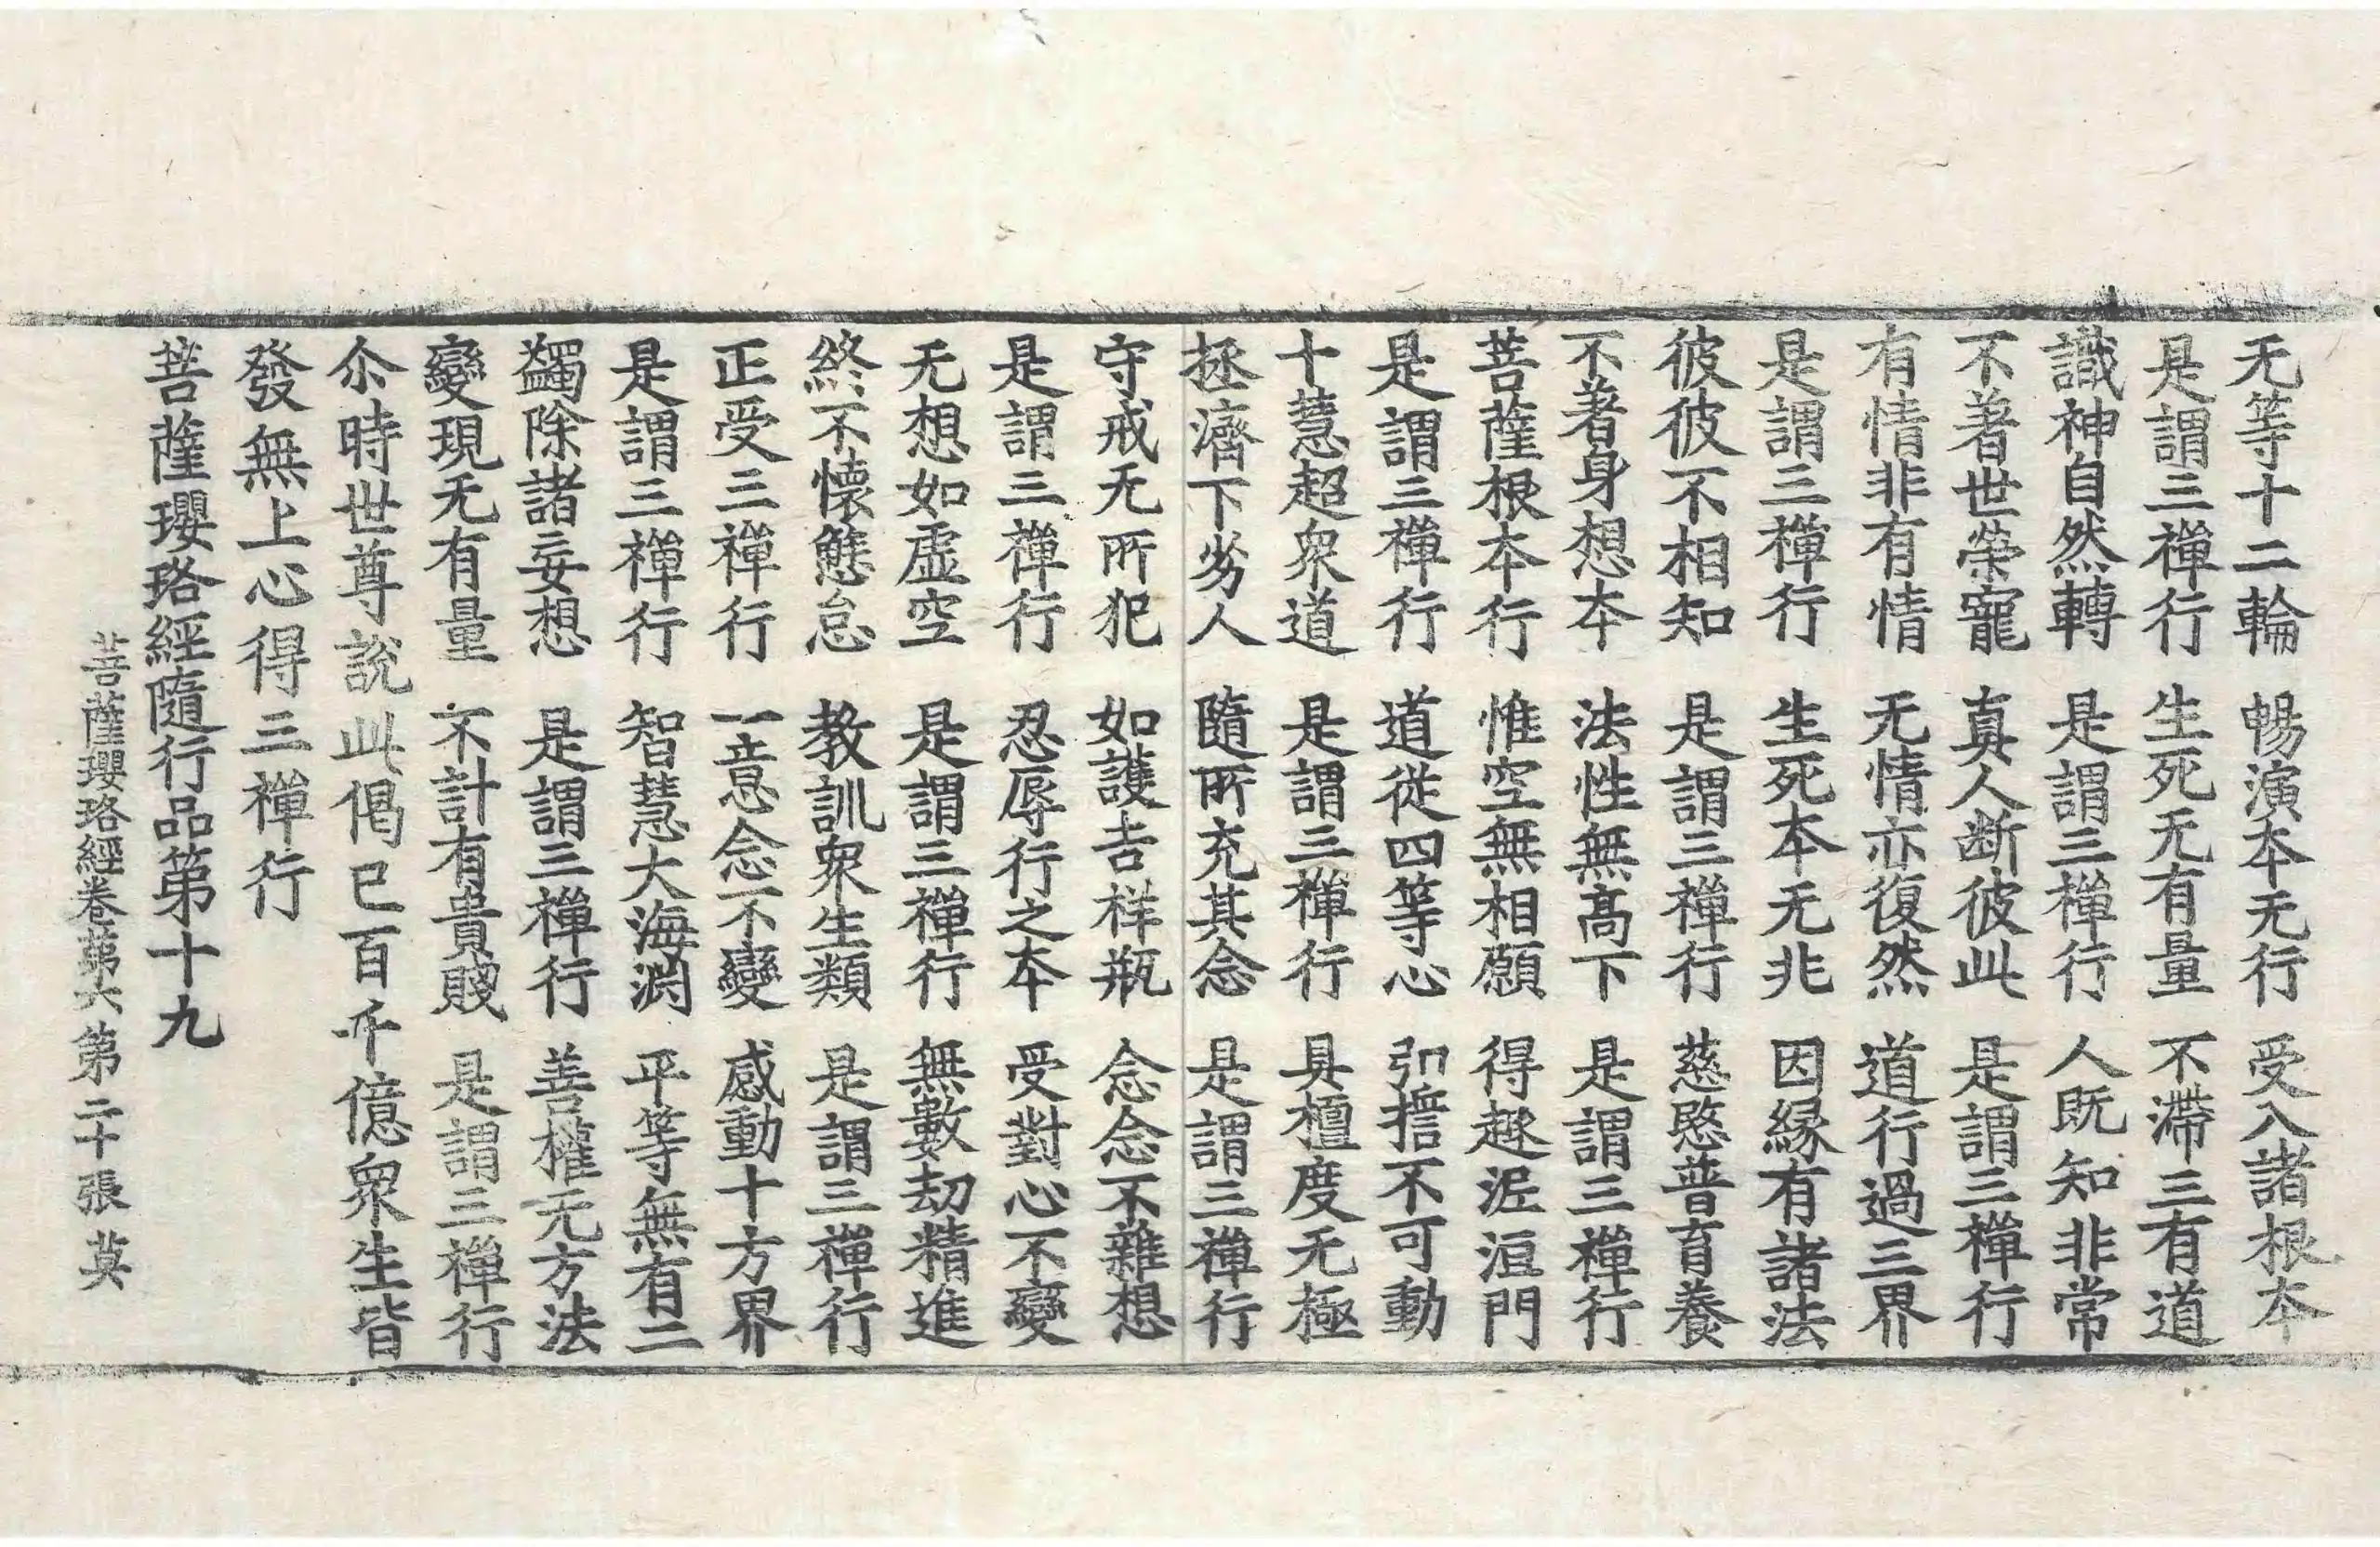 无等十二輪 暢演本无行 受入諸根本
是謂三禪行 生死无有量 不滯三有道
識神自然轉 是謂三禪行 人既知非常
不著世榮寵 真人断彼此 是謂三禪行
有情非有情 无情亦復然 道行過三界
是謂三禪行 生死本无非 因緣有諸法
彼彼不相知 是謂三禪行 慈愍普育養
不著身想本 法性無髙下 是謂三禪行
菩薩根本行 惟空無相願 得趣泥洹門
是謂三禪行 道從四等心 弘擔不可動
十慧超衆道 是謂三禪行 具檀度无極
拯濟下劣人 隨所充其念 是謂三禪行
守戒无所犯 如護吉祥瓶 念念不雜想
是謂三禪行 忍辱行之本 受對心不變
无想如虛空 是謂三禪行 無數劫精進
終不懷懈怠 教訓衆生類 是謂三禪行
正受三禪行 一意念不變 感動十方界
是謂三禪行 智慧大海淵 平等無有二
蠲除諸妄想 是謂三禪行 善權无方法
變現无有量 不計有貴賤 是謂三禪行
尒時世尊說此偈已百千億衆生皆
發無上心得三禪行
菩薩瓔珞經隨行品第十九
菩薩瓔珞經卷苐六 第二十張 莫